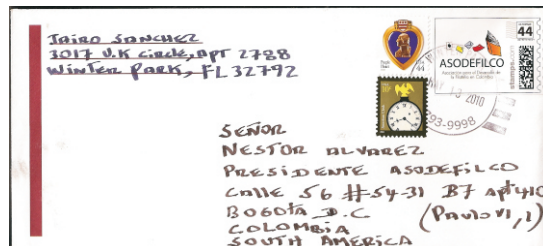 JAIRO SANCHEZ
3017 U.K circle, APT 2788
WINTER PARK, FL 32792
Purple
Heart
USA
44
ASODEFILCO
Asociación para el Desarrollo de
la Filatelia en Colombia
44
stamps.com
2010
93-9998
SEÑOR
NESTOR ALVAREZ
PRESIDENTE ASODEFILCO
Calle 56 #54-31 B7 apt 410
BOGOTA D.C (Paulo VI, 1)
COLOMBIA
SOUTH AMERICA